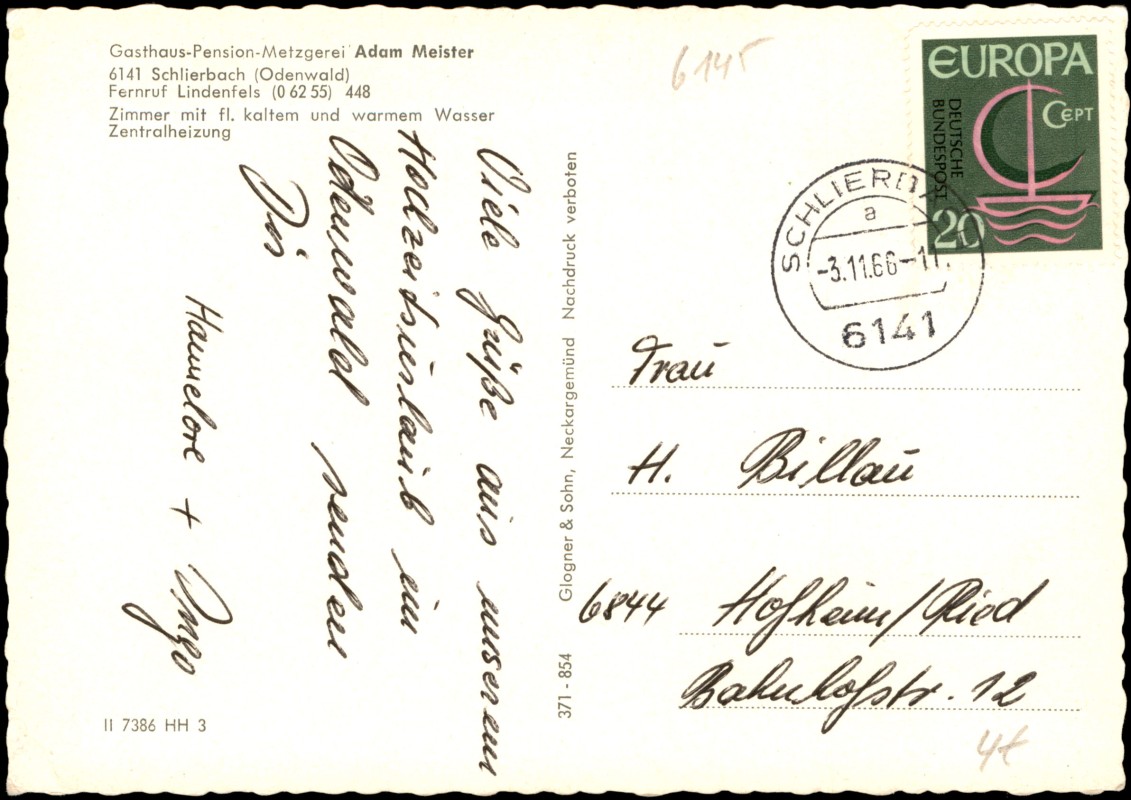 Gasthaus-Pension-Metzgerei Adam Meister
6141 Schlierbach (Odenwald)
Fernruf Lindenfels (0 62 55) 448
Zimmer mit fl. kaltem und warmem Wasser
Zentralheizung
6145
EUROPA
CEPT
DEUTSCHE
BUNDESPOST
20
SCHLIERBA
a
-3.11.66-11
6141
Viele Grüße aus unserem
Hochzeitsurlaub im
Odenwald senden
Dir
Hannelore + Ingo
Glogner & Sohn, Neckargemünd Nachdruck verboten
371 - 854
Frau
H. Billau
6844 Hofheim/Ried
Bahnhofstr. 12
II 7386 HH 3
4€